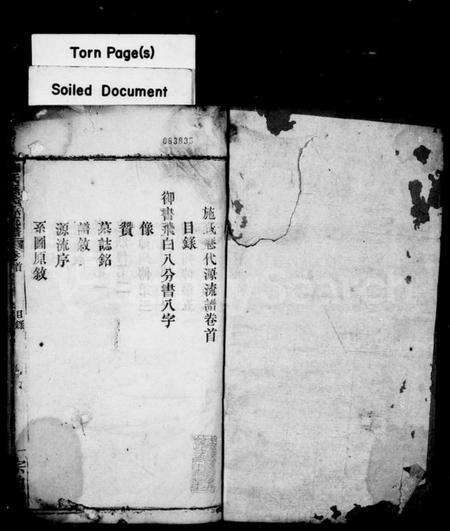 Torn Page(s)
Soiled Document
施氏歷代源流譜卷首
目錄
御書飛白八分書八字
像
贊
墓誌銘
譜敘
源流序
系圖原敘
首
目錄